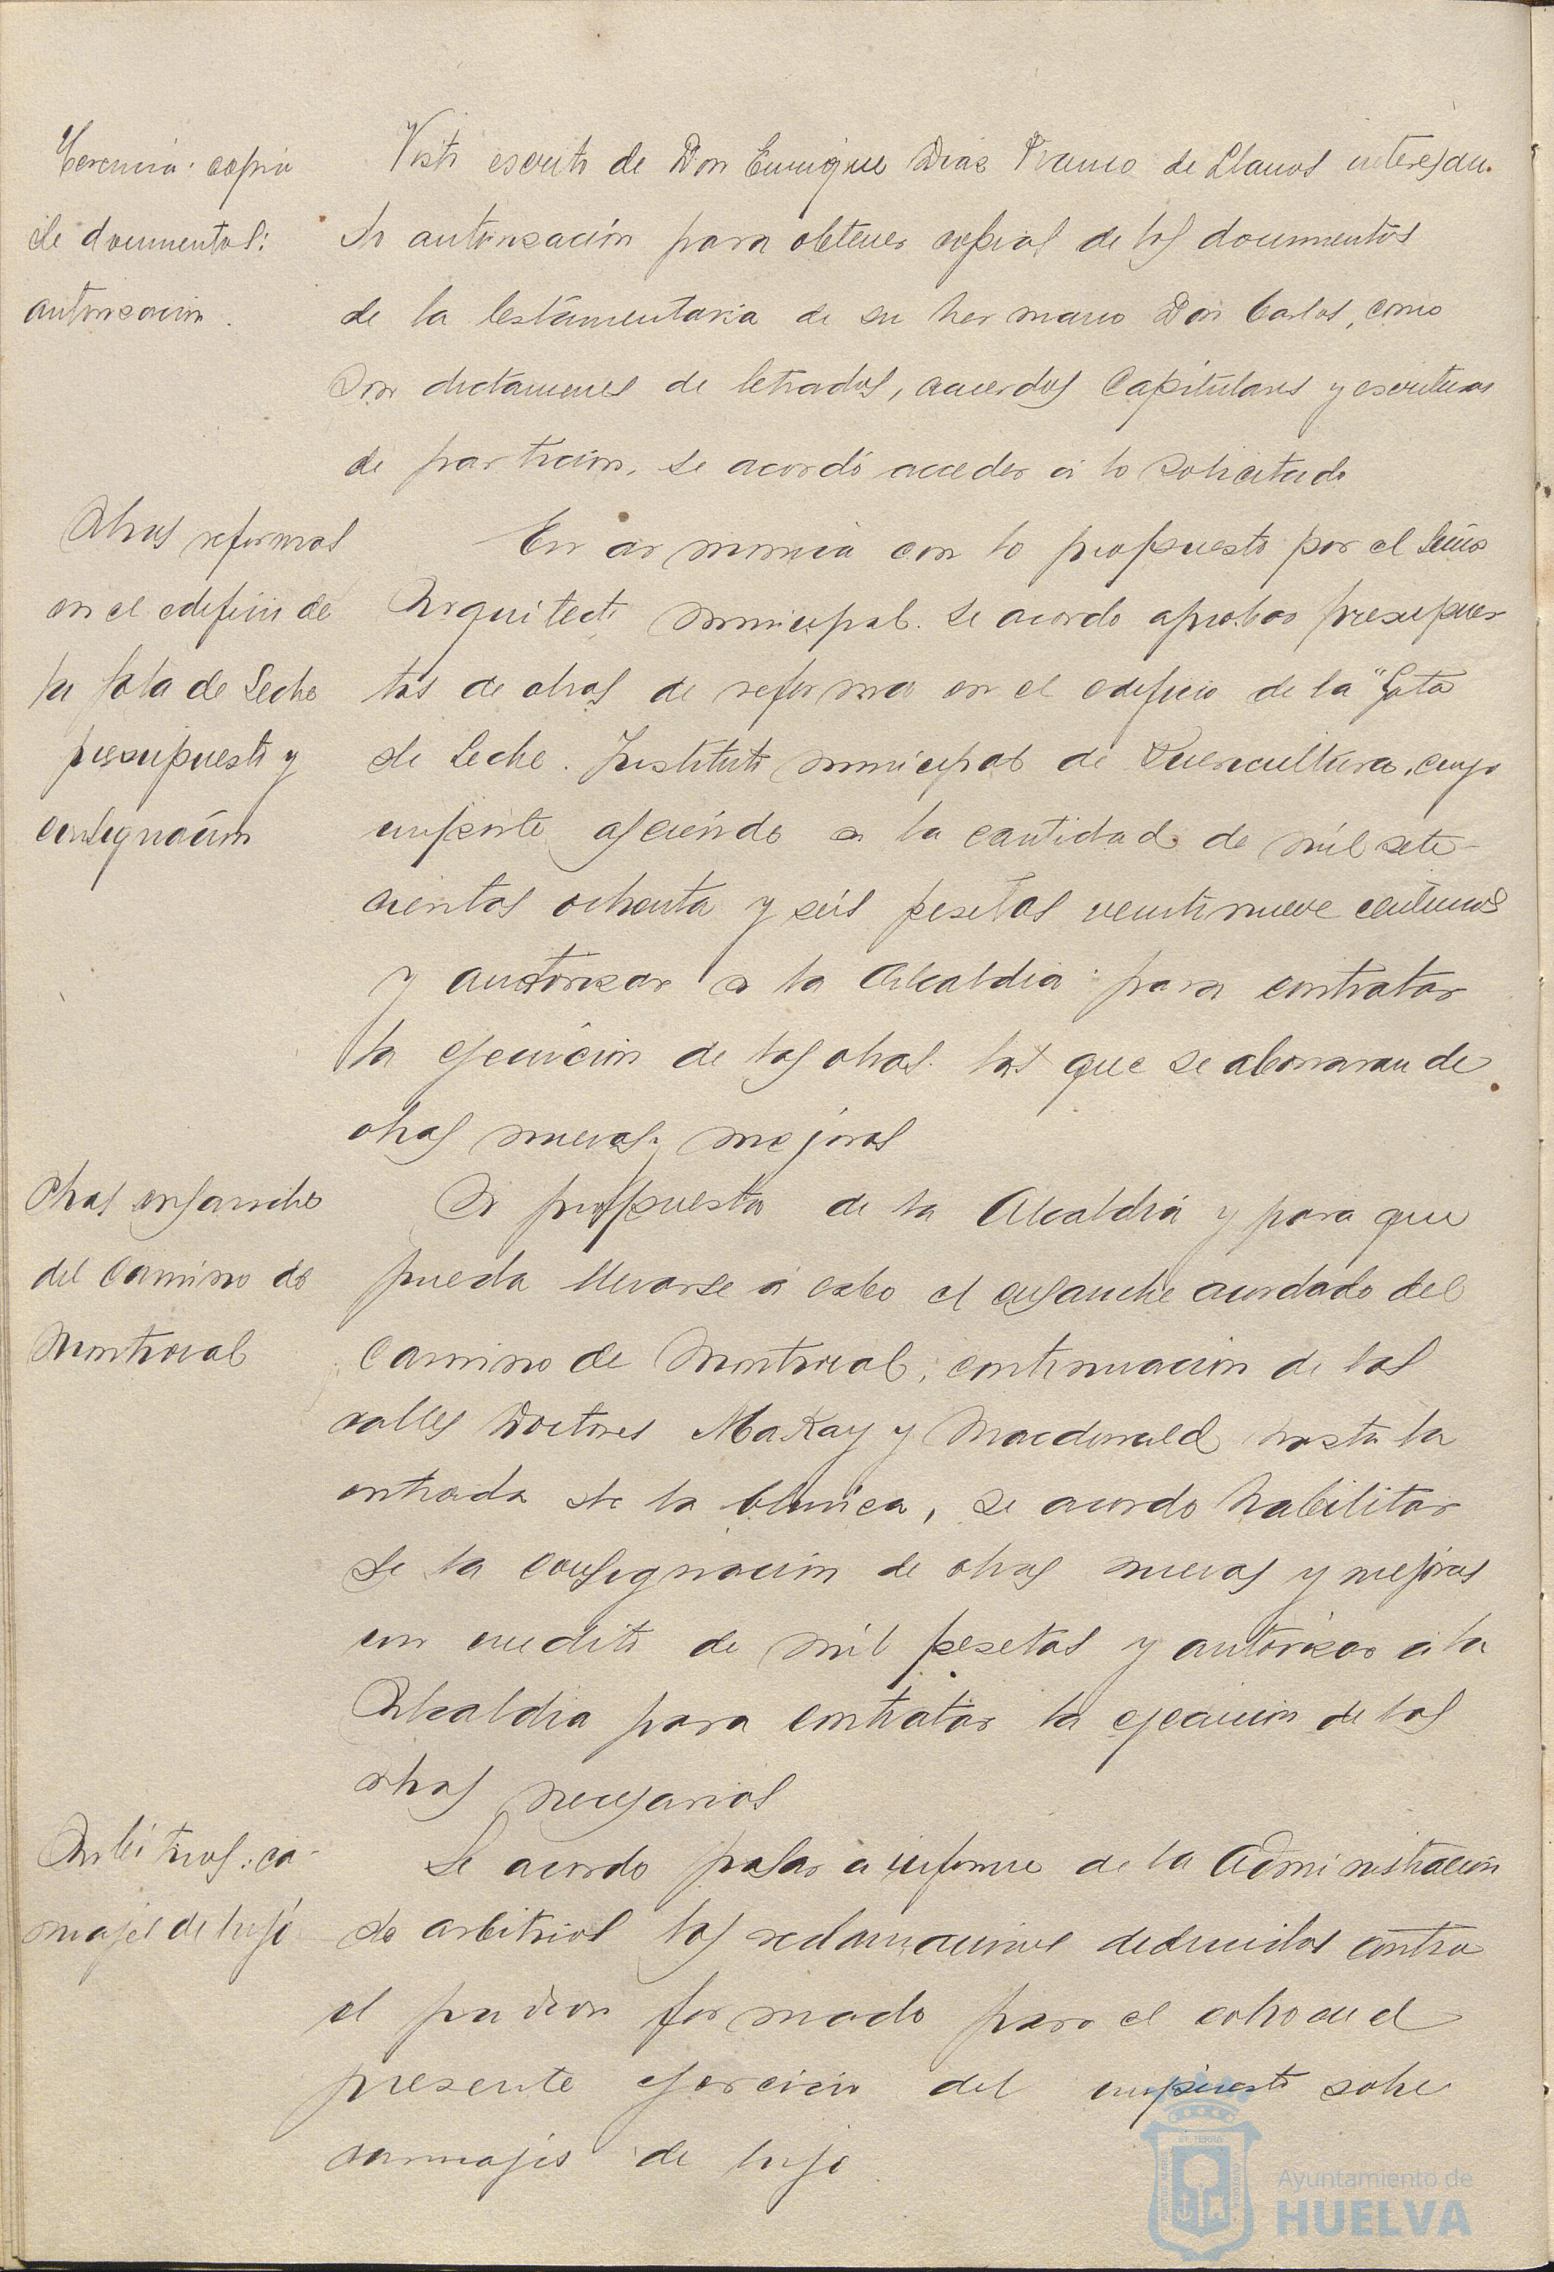 Herencia: copia
de documentos:
autorizacion.
Visto escrito de Don Enrique Diaz Franco de Llanos interesan-
do autorización para obtener copias de los documentos
de la testamentaria de su hermano Don Carlos, como
son dictamenes de letrados, acuerdos Capitulares y escrituras
de particion, se acordó acceder á lo solicitado
Obras reformas
en el edificio de
la Gota de Leche
presupuesto y
consignación
En armonia con lo propuesto por el Señor
Arquitecto municipal. se acordo aprobar presupues
tos de obras de reforma en el edificio de la "Gota
de Leche. Instituto municipal de Puericultura, cuyo
importe asciende a la cantidad de mil sete-
cientas ochenta y seis pesetas veintinueve centimos
y autorizar a la Alcaldia para contratar
la ejecución de las obras. las que se abonaran de
obras nuevas y mejoras
Obras ensanche
del Camino de
Montrocal
A propuesta de la Alcaldia y para que
pueda llevarse á cabo el ensanche acordado del
Camino de Montrocal, continuacion de las
calles Doctores MaKay y Macdonald hasta la
entrada de la Clinica, se acordo habilitar
de la consignacion de obras nuevas y mejoras
un credito de mil pesetas y autorizar á la
Alcaldia para contratar la ejecucion de las
obras necesarias
Arbitrios: ca-
rruajes de lujo
Se acordo pasar a informe de la Administracion
de arbitrios las reclamaciones deducidas contra
el padron formado para el cobro en el
presente ejercicio del impuesto sobre
carruajes de lujo.
Ayuntamiento de
HUELVA